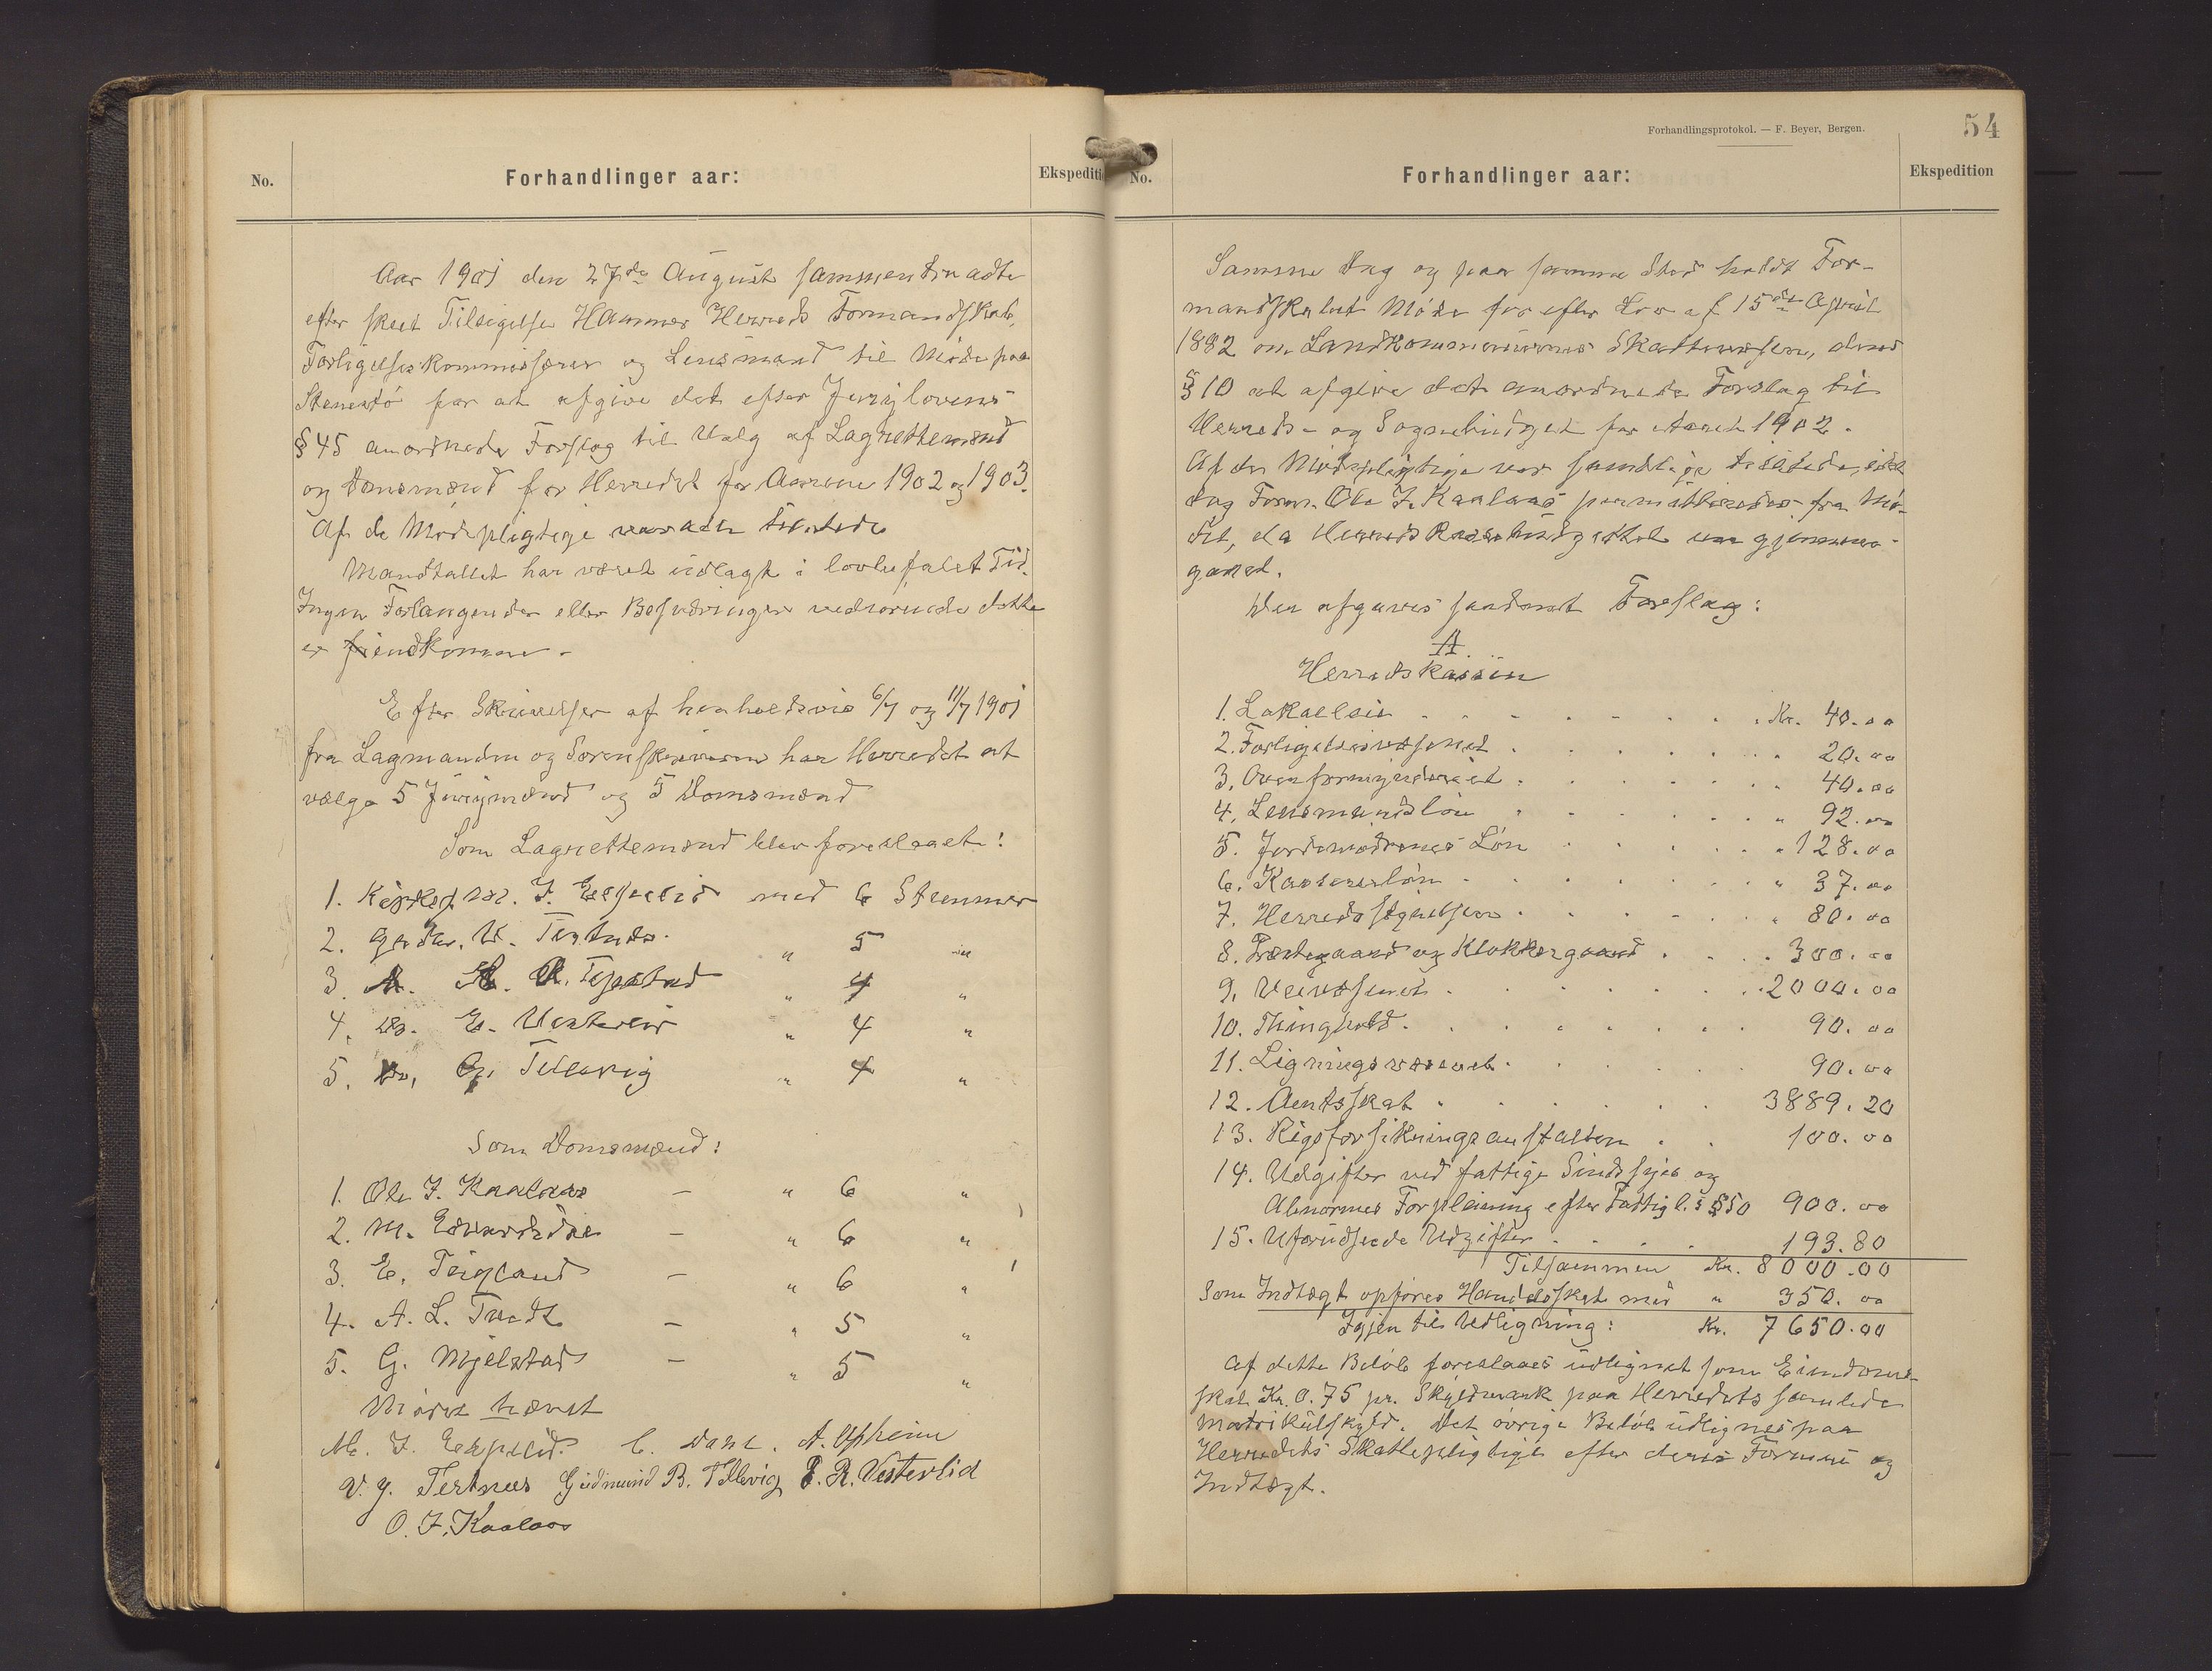 No.
Forhandlinger aar:
Ekspediti
Aar 1901 den 27de August sammentraadte
efter skeet Tilsigelse Hammer Herreds Formandskab,
Forligelseskommissærer og Lensmand til Møde paa
Stenestø for at afgive det efter Jurylovens
§ 45 anordnede Forslag til Valg af Lagrettemænd
og Domsmænd for Herredet for Aarene 1902 og 1903.
Af de Mødepligtige var alle tilstede
Mandtallet har været udlagt i lovbefalet Tid.
Ingen Forlangender eller Besværinger vedrørende dette
er fremkommen.
Efter Skrivelser af henholdsvis 6/7 og 11/7 1901
fra Lagmanden og Sorenskriveren har Herredet at
vælge 5 Jurymænd og 5 Domsmænd
Som Lagrettemænd blev foreslaaet:
1. Kirkes. M. J. Espelid med 6 Stemmer
2. Gbr. V. Tertnes " 5 "
3. A. Tepstad " 4 "
4. Do. E. Vesterlid " 4 "
5. Do. G. Tellevig " 4 "
Som Domsmænd:
1. Ole J. Kaalaas — " 6 "
2. M. Edvardsdal — " 6 "
3. E. Teigland — " 6 "
4. A. L. Tvedt — " 5 "
5. G. Mjelstad — " 5 "
Mødet hævet
M. J. Espelid. C. Dahl. A. Opheim
V. J. Tertnes Gudmund B. Tellevig E. R. Vesterlid
O. J. Kaalaas
Forhandlingsprotokol. — F. Beyer, Bergen.
54
No.
Forhandlinger aar:
Ekspedition
Samme Dag og paa samme Sted holdt For-
mandskabet Møde for efter Lov af 15de April
1882 om Landkommunernes Skattevæsen, dens
§ 10 at afgive det anordnede Forslag til
Herreds- og Sognebudget for Aaret 1902.
Af de Mødepligtige var samtlige tilstede, idet
dog Form. Ole J. Kaalaas permitteredes fra Mø-
det, da Herredskassebudgettet var gjennem-
gaaet.
Der afgaves saadant Forslag:
A
Herredskassen
1. Lokalleie . . . . . . . . Kr. 40.00
2. Forligelsesvæsenet . . . . . . " 20.00
3. Overformynderiet . . . . . . " 40.00
4. Lensmandsløn . . . . . . " 92.00
5. Jordemødrenes Løn . . . . . " 128.00
6. Kassererløn . . . . . . . " 37.00
7. Herredsstyrelsen . . . . . . " 80.00
8. Præstegaard og Klokkergaard . . . . 300.00
9. Veivæsenet . . . . . . . . 2000.00
10. Thinghold . . . . . . . 90.00
11. Ligningsvæsenet . . . . . . 90.00
12. Amtsskat . . . . . . 3889.20
13. Rigsforsikringsanstalten . . 100.00
14. Udgifter ved fattige Sindssyges og
Abnormes Forpleining efter Fattigl.s § 50 900.00
15. Uforudseede Udgifter . . . . 193.80
Tilsammen Kr. 8000.00
Som Indtægt opføres Handelsskat med " 350.00
Igjen til Udligning: Kr. 7650.00
Af dette Beløb foreslaaes udlignet som Eiendoms-
skat Kr. 0.75 pr. Skyldmark paa Herredets samlede
Matrikulskyld. Det øvrige Beløb udlignes paa
Herredets Skattepligtige efter deres Formue og
Indtægt.